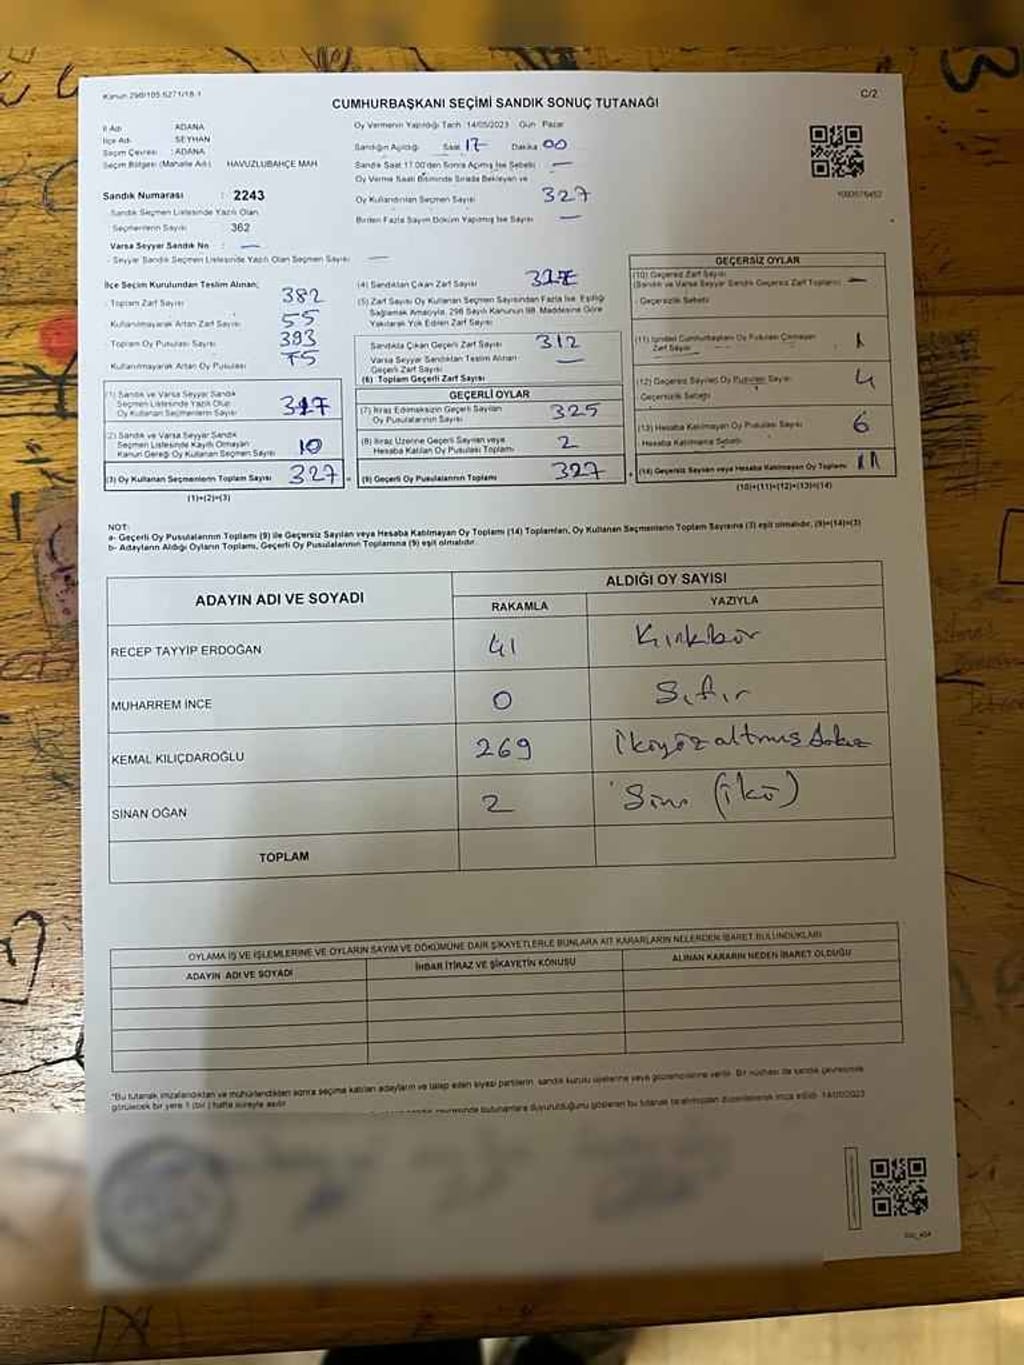 Kanun 298/105.6271/18.1
CUMHURBAŞKANI SEÇİMİ SANDIK SONUÇ TUTANAĞI
C/2
İl Adı : ADANA
İlçe Adı : SEYHAN
Seçim Çevresi : ADANA
Seçim Bölgesi (Mahalle Adı) : HAVUZLUBAHÇE MAH.
Sandık Numarası : 2243
Sandık Seçmen Listesinde Yazılı Olan
Seçmenlerin Sayısı 362
Varsa Seyyar Sandık No : —
- Seyyar Sandık Seçmen Listesinde Yazılı Olan Seçmen Sayısı —
Oy Vermenin Yapıldığı Tarih 14/05/2023 Gün Pazar
Sandığın Açıldığı Saat 17 Dakika 00
Sandık Saat 17.00'den Sonra Açılmış İse Sebebi —
Oy Verme Saati Bitiminde Sırada Bekleyen ve
Oy Kullandırılan Seçmen Sayısı 327
Birden Fazla Sayım Döküm Yapılmış İse Sayısı —
İlçe Seçim Kurulundan Teslim Alınan;
- Toplam Zarf Sayısı 382
- Kullanılmayarak Artan Zarf Sayısı 55
- Toplam Oy Pusulası Sayısı 393
- Kullanılmayarak Artan Oy Pusulası
(1) Sandık ve Varsa Seyyar Sandık
Seçmen Listesinde Yazılı Olup
Oy Kullanan Seçmenlerin Sayısı 317
(2) Sandık ve Varsa Seyyar Sandık
Seçmen Listesinde Kayıtlı Olmayan
Kanun Gereği Oy Kullanan Seçmen Sayısı 10
(3) Oy Kullanan Seçmenlerin Toplam Sayısı 327
(1)+(2)=(3)
(4) Sandıktan Çıkan Zarf Sayısı
(5) Zarf Sayısı Oy Kullanan Seçmen Sayısından Fazla İse, Eşitliği
Sağlamak Amacıyla, 298 Sayılı Kanunun 98. Maddesine Göre
Yakılarak Yok Edilen Zarf Sayısı
Sandıkta Çıkan Geçerli Zarf Sayısı 312
Varsa Seyyar Sandıktan Teslim Alınan
Geçerli Zarf Sayısı —
(6) Toplam Geçerli Zarf Sayısı
GEÇERLİ OYLAR
(7) İtiraz Edilmeksizin Geçerli Sayılan
Oy Pusulasının Sayısı 325
(8) İtiraz Üzerine Geçerli Sayılan veya
Hesaba Katılan Oy Pusulası Toplamı 2
(9) Geçerli Oy Pusulalarının Toplamı 327
GEÇERSİZ OYLAR
(10) Geçersiz Zarf Sayısı
(Sandık ve Varsa Seyyar Sandık Geçersiz Zarf Toplamı) —
- Geçersizlik Sebebi
(11) İçinden Cumhurbaşkanı Oy Pusulası Çıkmayan
Zarf Sayısı 1
(12) Geçersiz Sayılan Oy Pusulası Sayısı 4
Geçersizlik Sebebi
(13) Hesaba Katılmayan Oy Pusulası Sayısı 6
Hesaba Katılmama Sebebi
(14) Geçersiz Sayılan veya Hesaba Katılmayan Oy Toplamı 11
(10)+(11)+(12)+(13)=(14)
NOT:
a- Geçerli Oy Pusulalarının Toplamı (9) ile Geçersiz Sayılan veya Hesaba Katılmayan Oy Toplamı (14) Toplamları, Oy Kullanan Seçmenlerin Toplam Sayısına (3) eşit olmalıdır, (9)+(14)=(3)
b- Adayların Aldığı Oyların Toplamı, Geçerli Oy Pusulalarının Toplamına (9) eşit olmalıdır.
ADAYIN ADI VE SOYADI
ALDIĞI OY SAYISI
RAKAMLA YAZIYLA
RECEP TAYYİP ERDOĞAN 41 Kırkbir
MUHARREM İNCE 0 Sıfır
KEMAL KILIÇDAROĞLU 269 ikiyüzaltmışdokuz
SİNAN OĞAN 2 (iki)
TOPLAM
OYLAMA İŞ VE İŞLEMLERİNE VE OYLARIN SAYIM VE DÖKÜMÜNE DAİR ŞİKAYETLERLE BUNLARA AİT KARARLARIN NELERDEN İBARET BULUNDUKLARI
ADAYIN ADI VE SOYADI İHBAR İTİRAZ VE ŞİKAYETİN KONUSU ALINAN KARARIN NEDEN İBARET OLDUĞU
*Bu tutanak imzalandıktan ve mühürlendikten sonra seçime katılan adayların ve talep eden siyasi partilerin sandık kurulu üyelerine veya gözlemcilerine verilir. Bir nüshası da sandık çevresinde
görülecek bir yere 1 (bir) hafta süreyle asılır.
bu tutanak tarafımızdan düzenlenerek imza edildi. 14/05/2023